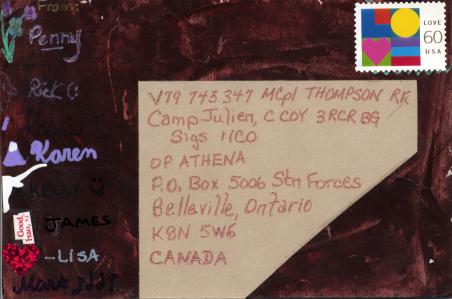 From:
Penny
Rick C:
Karen
KELLY
Good
JAMES
-LiSA
Mark
LOVE
60
USA
V79 743 347 MCpl THOMPSON RK
Camp Julien, C COY 3RCR BG
Sigs NCO
OP ATHENA
P.O. Box 5006 Stn Forces
Belleville, Ontario
K8N 5W6
CANADA